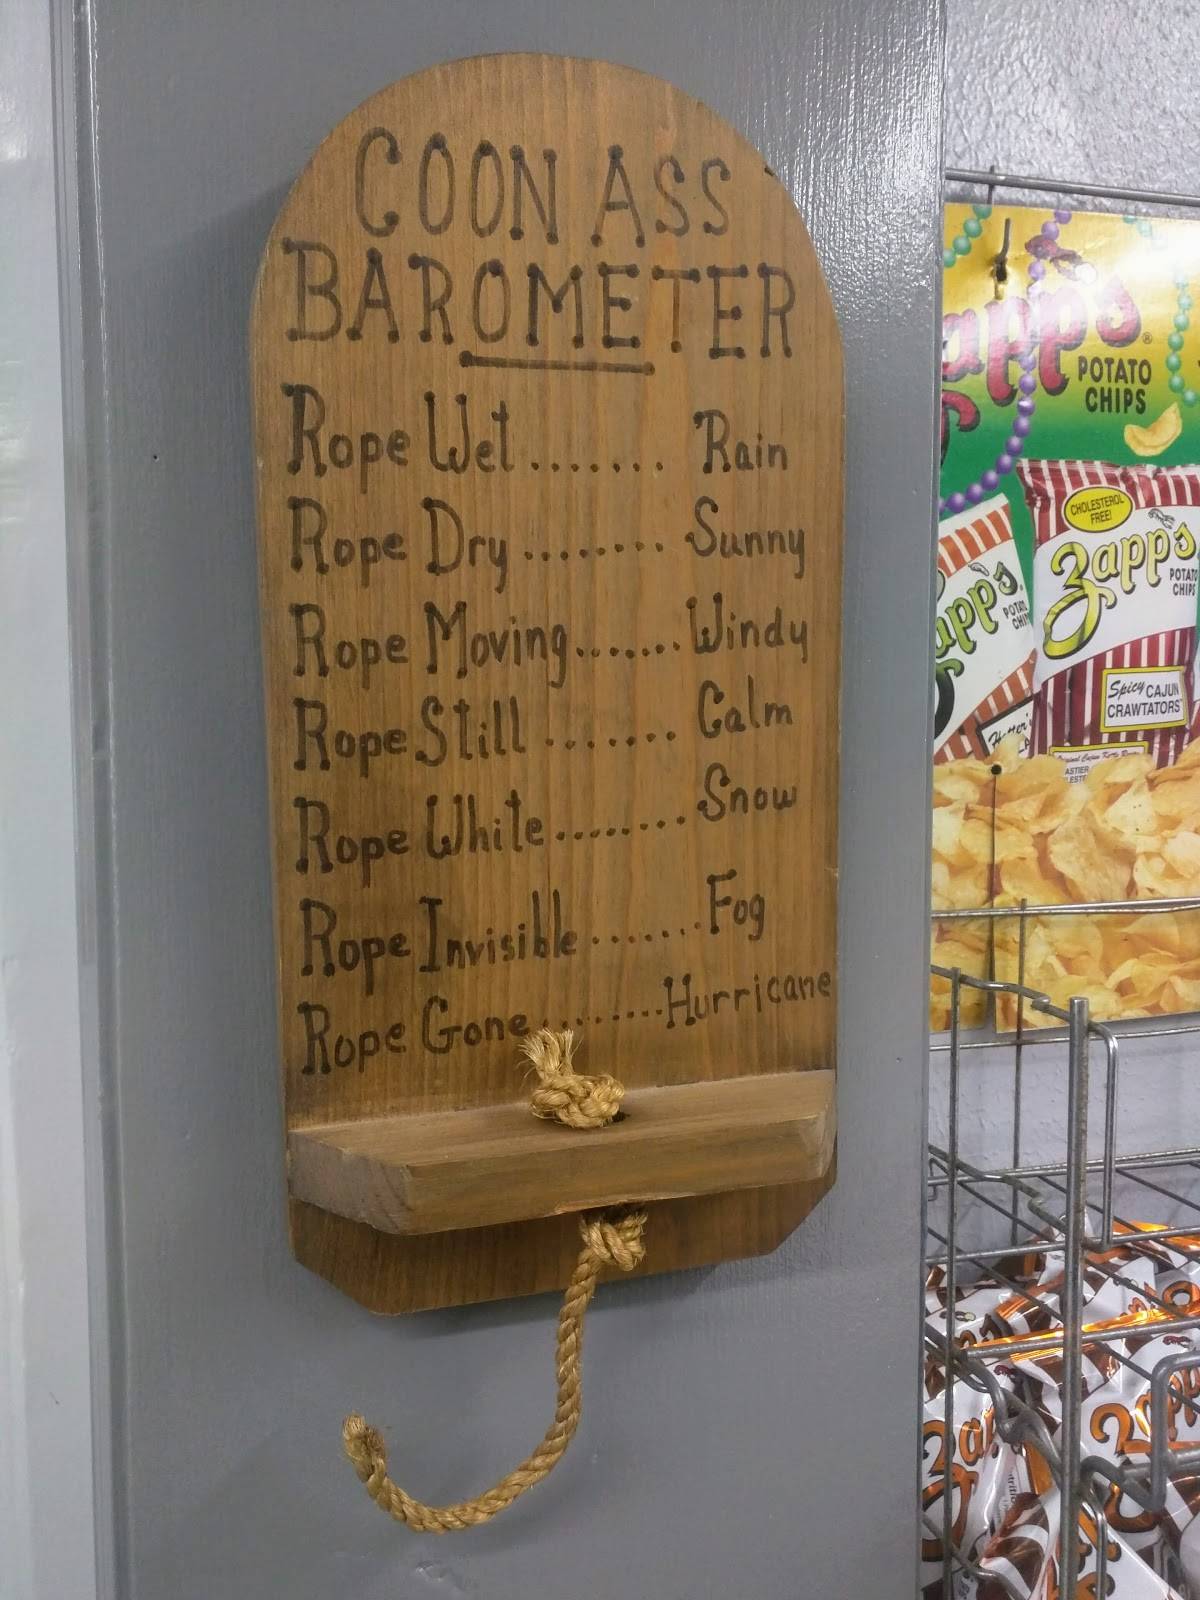 COON ASS
BAROMETER
Rope Wet ....... Rain
Rope Dry ........ Sunny
Rope Moving ....... Windy
Rope Still ....... Calm
Rope White ........ Snow
Rope Invisible ....... Fog
Rope Gone ........ Hurricane
Zapp's®
POTATO
CHIPS
CHOLESTEROL
FREE!
Zapp's
POTATO
CHIPS
Spicy CAJUN
CRAWTATORS
app's